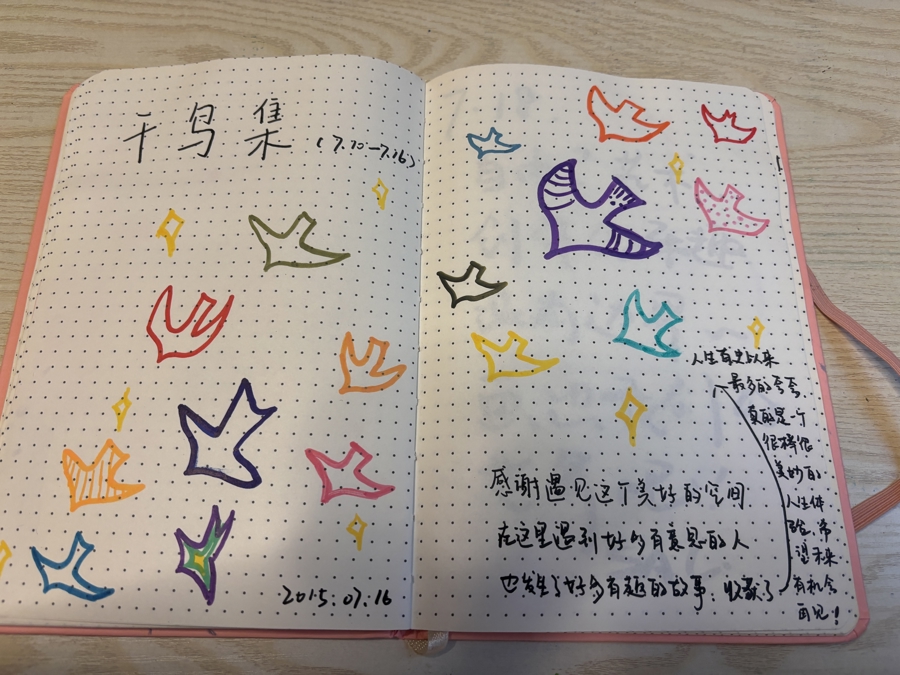 千鸟集 (7.10-7.16)
2015.07.16
感谢遇见这个美好的空间
在这里遇到好多有意思的人
也发生了好多有趣的故事. 收获了
人生有史以来
最多的夸夸
真的是个
很棒很
美妙的
人生体
验,希
望未来
有机会
再见!